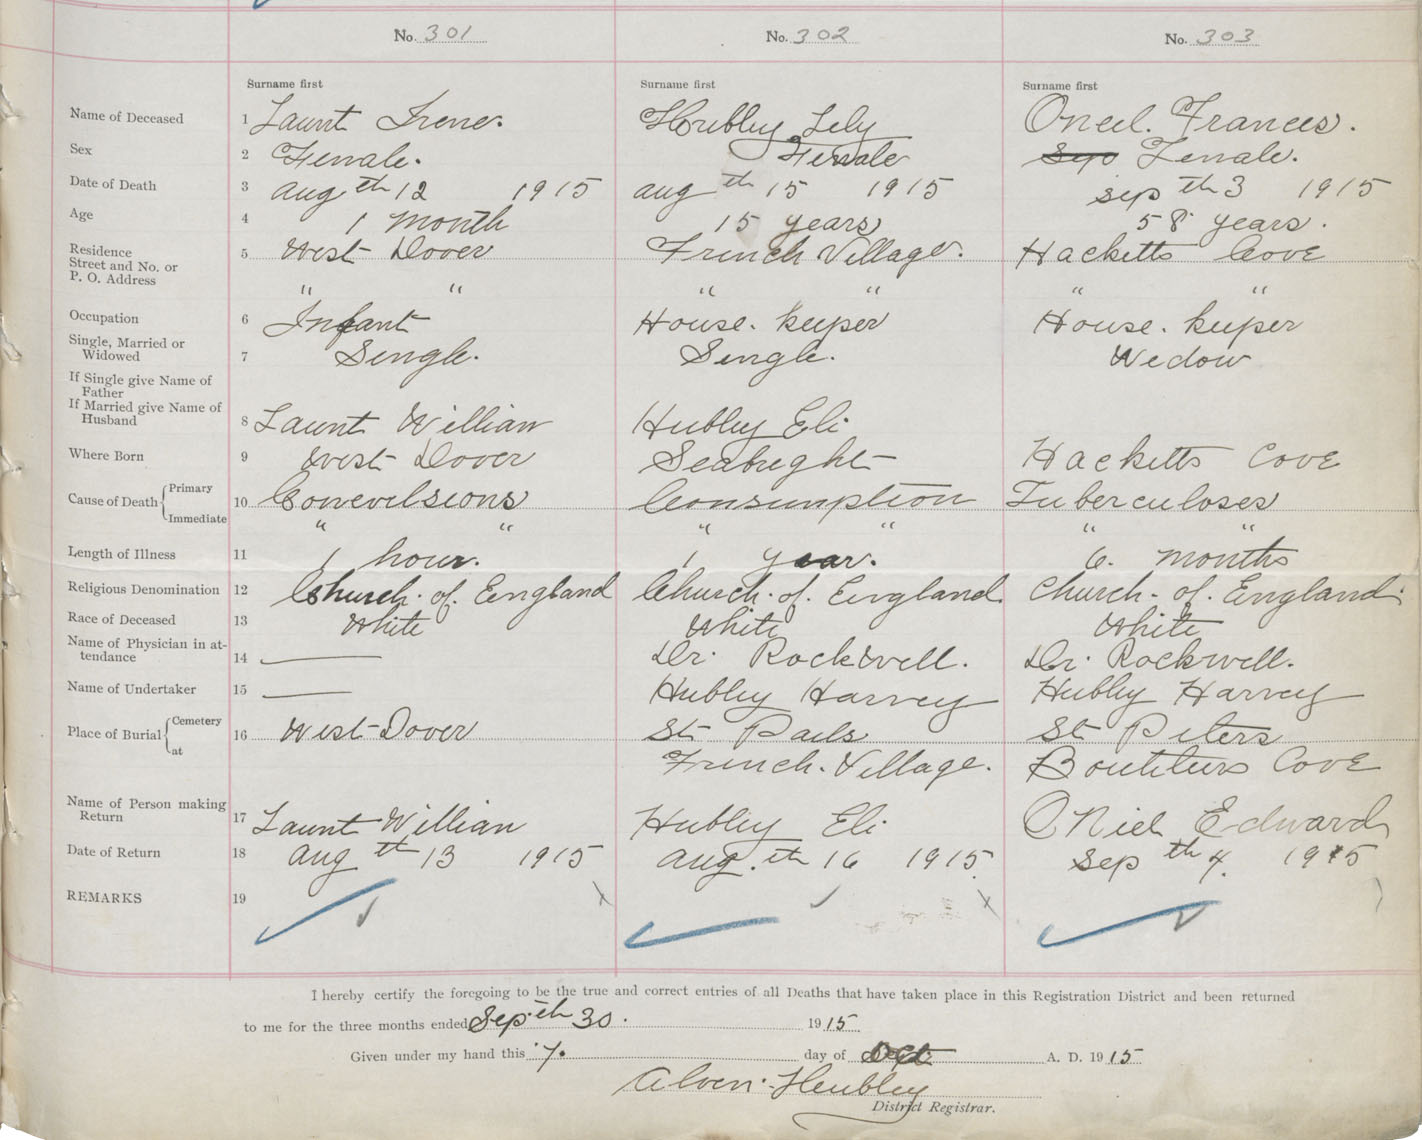 No. 301 No. 302 No. 303
Surname first Surname first Surname first
Name of Deceased 1 Launt Irene. Hubley Lely Oneel. Frances.
Sex 2 Female. Female Sep Female.
Date of Death 3 aug th 12 1915 aug th 15 1915 sep th 3 1915
Age 4 1 month 15 years 58 years.
Residence
Street and No. or 5 West Dover French Village. Hacketts Cove
P. O. Address
" " " " " "
Occupation 6 Infant House. keeper House. keeper
Single, Married or
Widowed 7 Single. Single. Wedow
If Single give Name of
Father
If Married give Name of
Husband 8 Launt Willian Hubley Eli
Where Born 9 West Dover Seabright Hacketts Cove
Cause of Death Primary
10 Convulsions Consumption Tuberculoses
Immediate " " " " " "
Length of Illness 11 1 hour. 1 year. 6. months
Religious Denomination 12 Church. of. England Church. of. England. Church. of. England.
Race of Deceased 13 White White White
Name of Physician in at-
tendance 14 Dr. Rockwell. Dr. Rockwell.
Name of Undertaker 15 Hubley Harvey Hubley Harvey
Place of Burial Cemetery
at 16 West Dover St Pails St Peters
French. Village. Boutiliers Cove
Name of Person making
Return 17 Launt Willian Hubley Eli ONiel Edward
Date of Return 18 aug th 13 1915 aug. th 16 1915 sep th 4. 1915
REMARKS 19
I hereby certify the foregoing to be the true and correct entries of all Deaths that have taken place in this Registration District and been returned
to me for the three months ended Sep. th 30. 1915
Given under my hand this 7. day of Oct A. D. 1915
Alven. Heubley
District Registrar.